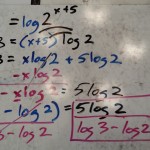 = log 2^(x+5)
3 = (x+5) log 2
3 = x log 2 + 5 log 2
- x log 2
- x log 2 = 5 log 2
- log 2) = 5 log 2
3 - log 2 log 3 - log 2